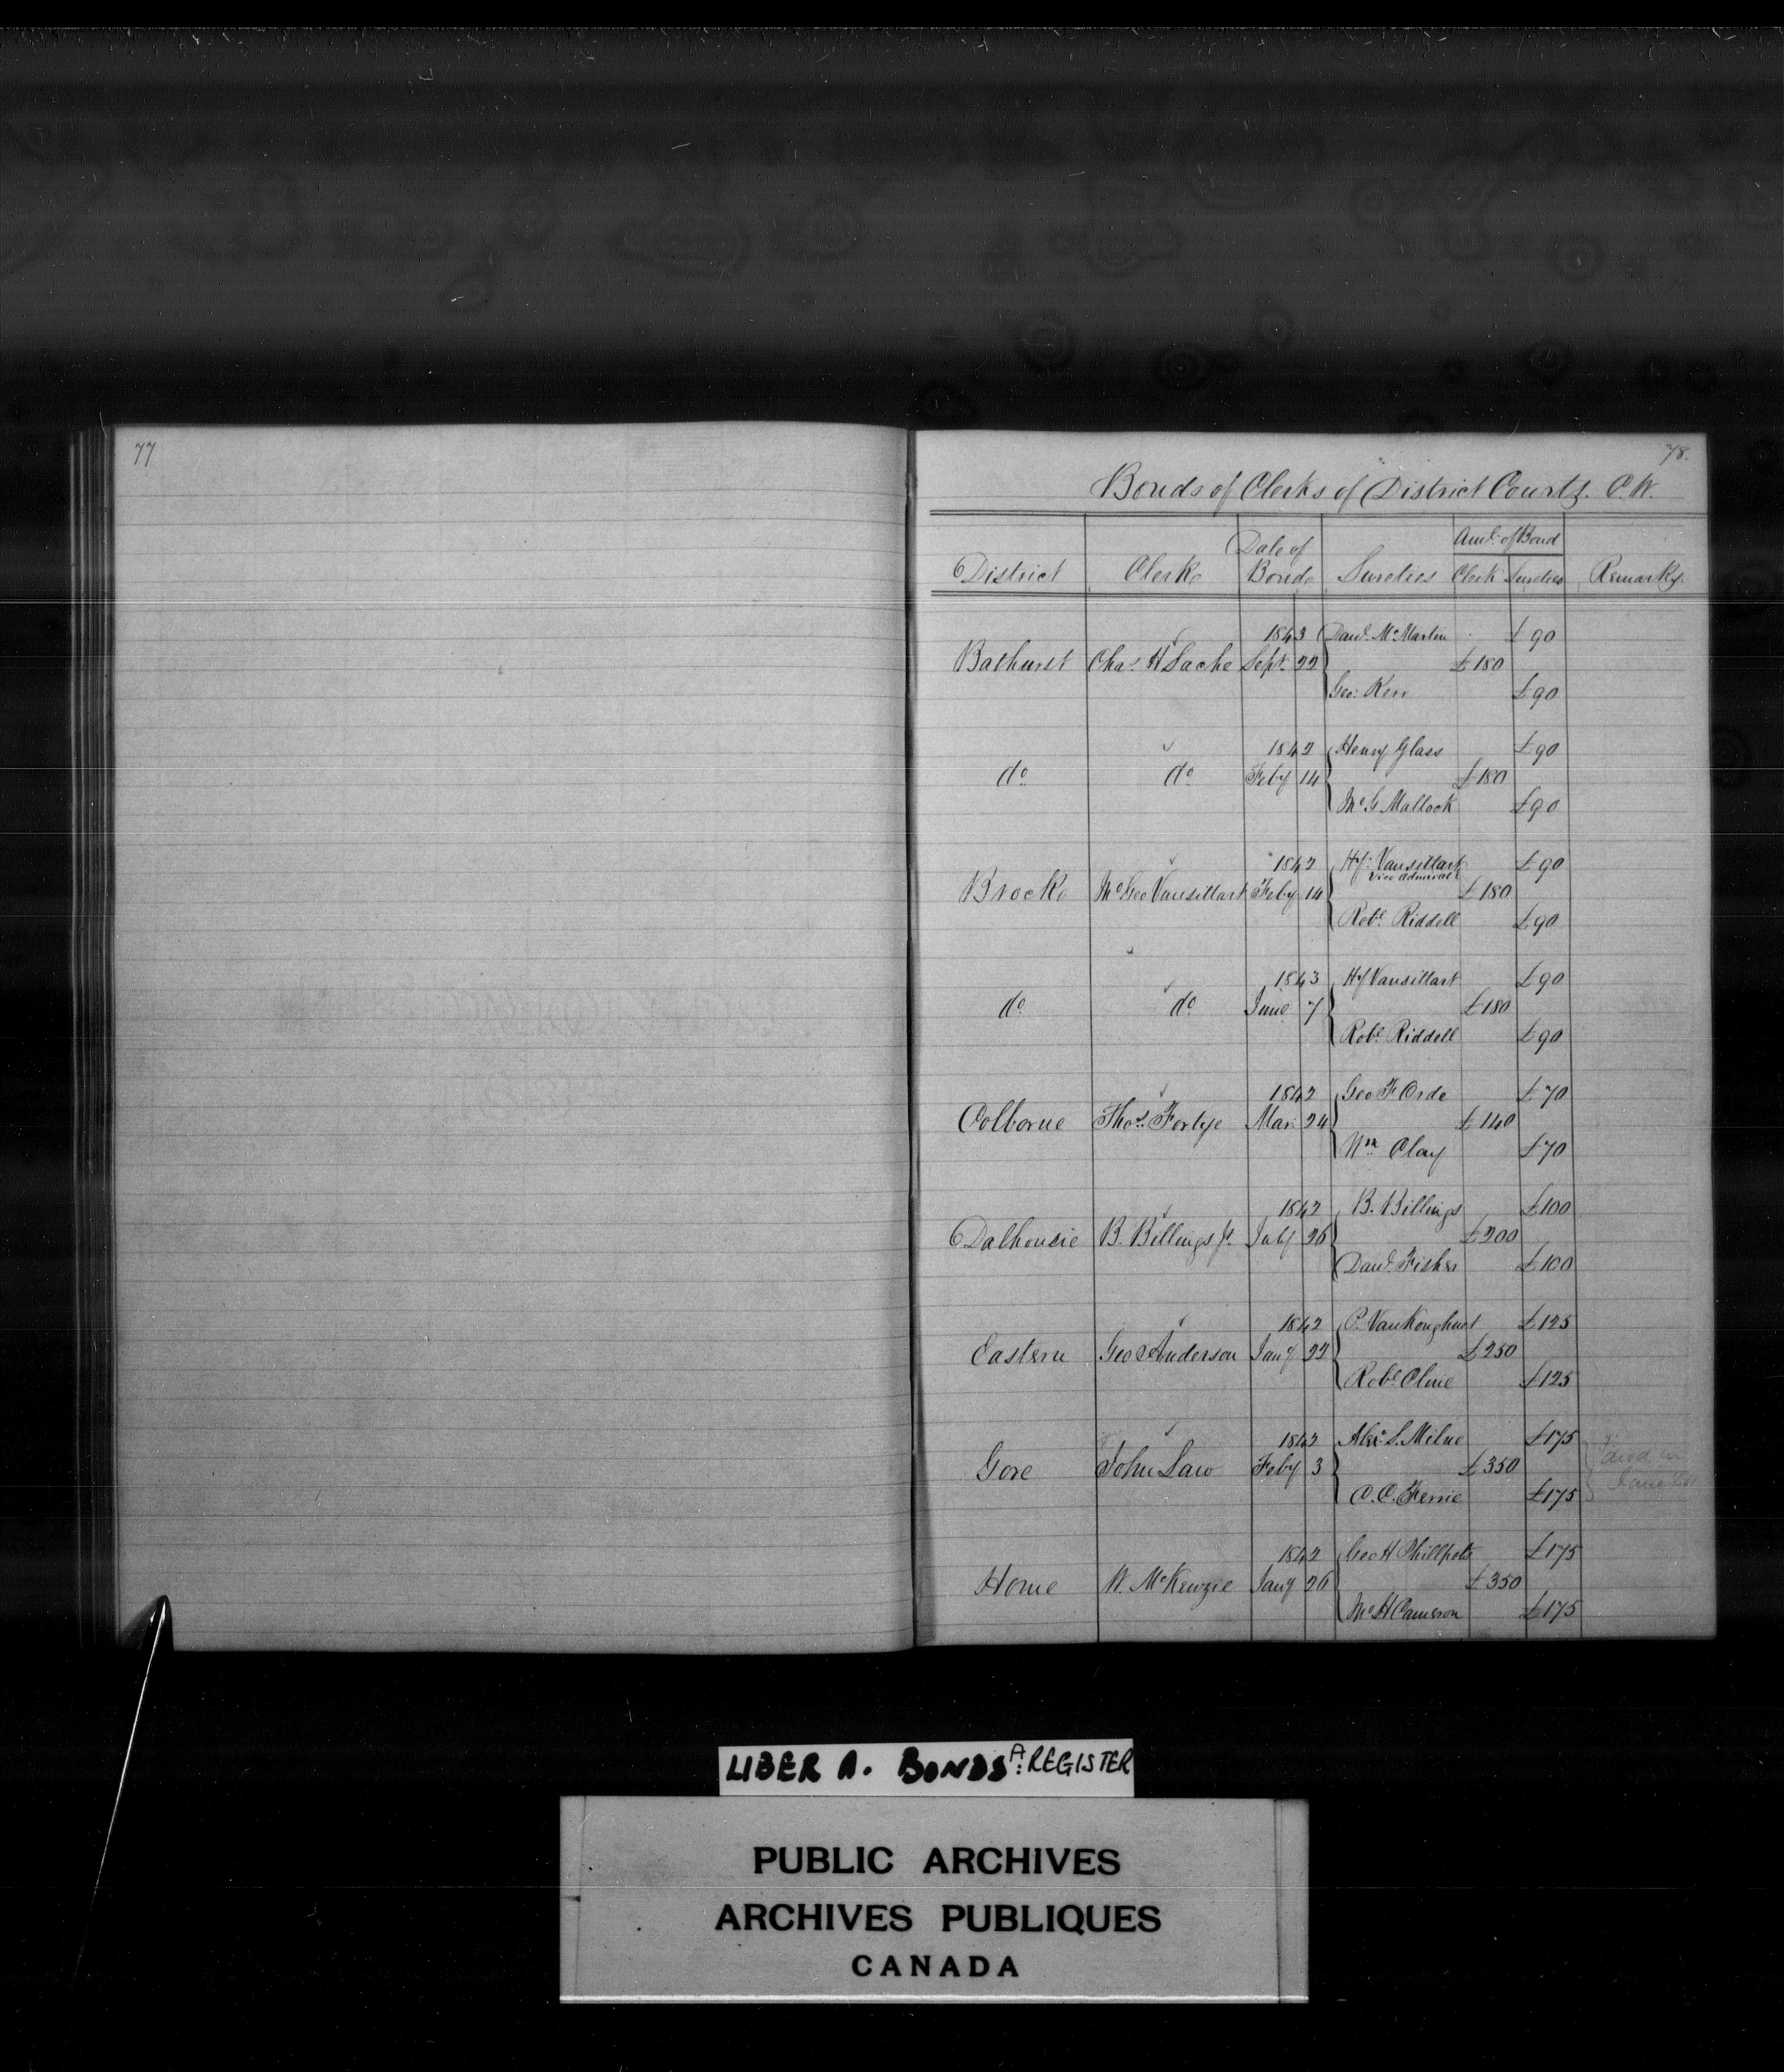 77
78.
Bonds of Clerks of District Courts. C.W.
Amt. of Bond
District Clerk Date of Bond Sureties Clerk Sureties Remarks
1843 Danl. McMartin £90
Bathurst Chas. H Sache Sept. 22 £180
Geo: Kerr £90
1842 Henry Glass £90
do do Feby 14 £180
Mc G Mallock £90
1842 Hy: Vansittart £90
Vice Admiral
Brock Geo Vansittart Feby 14 £180
Robt. Riddell £90
1843 Hy Vansittart £90
do do June 7 £180
Robt. Riddell £90
1842 Geo F Orde £70
Colborne Thos. Fortye Mar. 24 £140
Wm Clay £70
1842 B. Billings £100
Dalhousie B. Billings Jr. July 26 £200
Danl. Fisher £100
1842 P. VanKoughnet £125
Eastern Geo Anderson Jany 22 £250
Robt. Cline £125
1842 Alexr. S. Milne £175
Gore John Law Feby 3 £350
C. C. Ferrie £175
died in
1842 Geo H Phillpots £175
Home W. McKenzie Jany 26 £350
H Cameron £175
LIBER A. BONDS: A REGISTER
PUBLIC ARCHIVES
ARCHIVES PUBLIQUES
CANADA